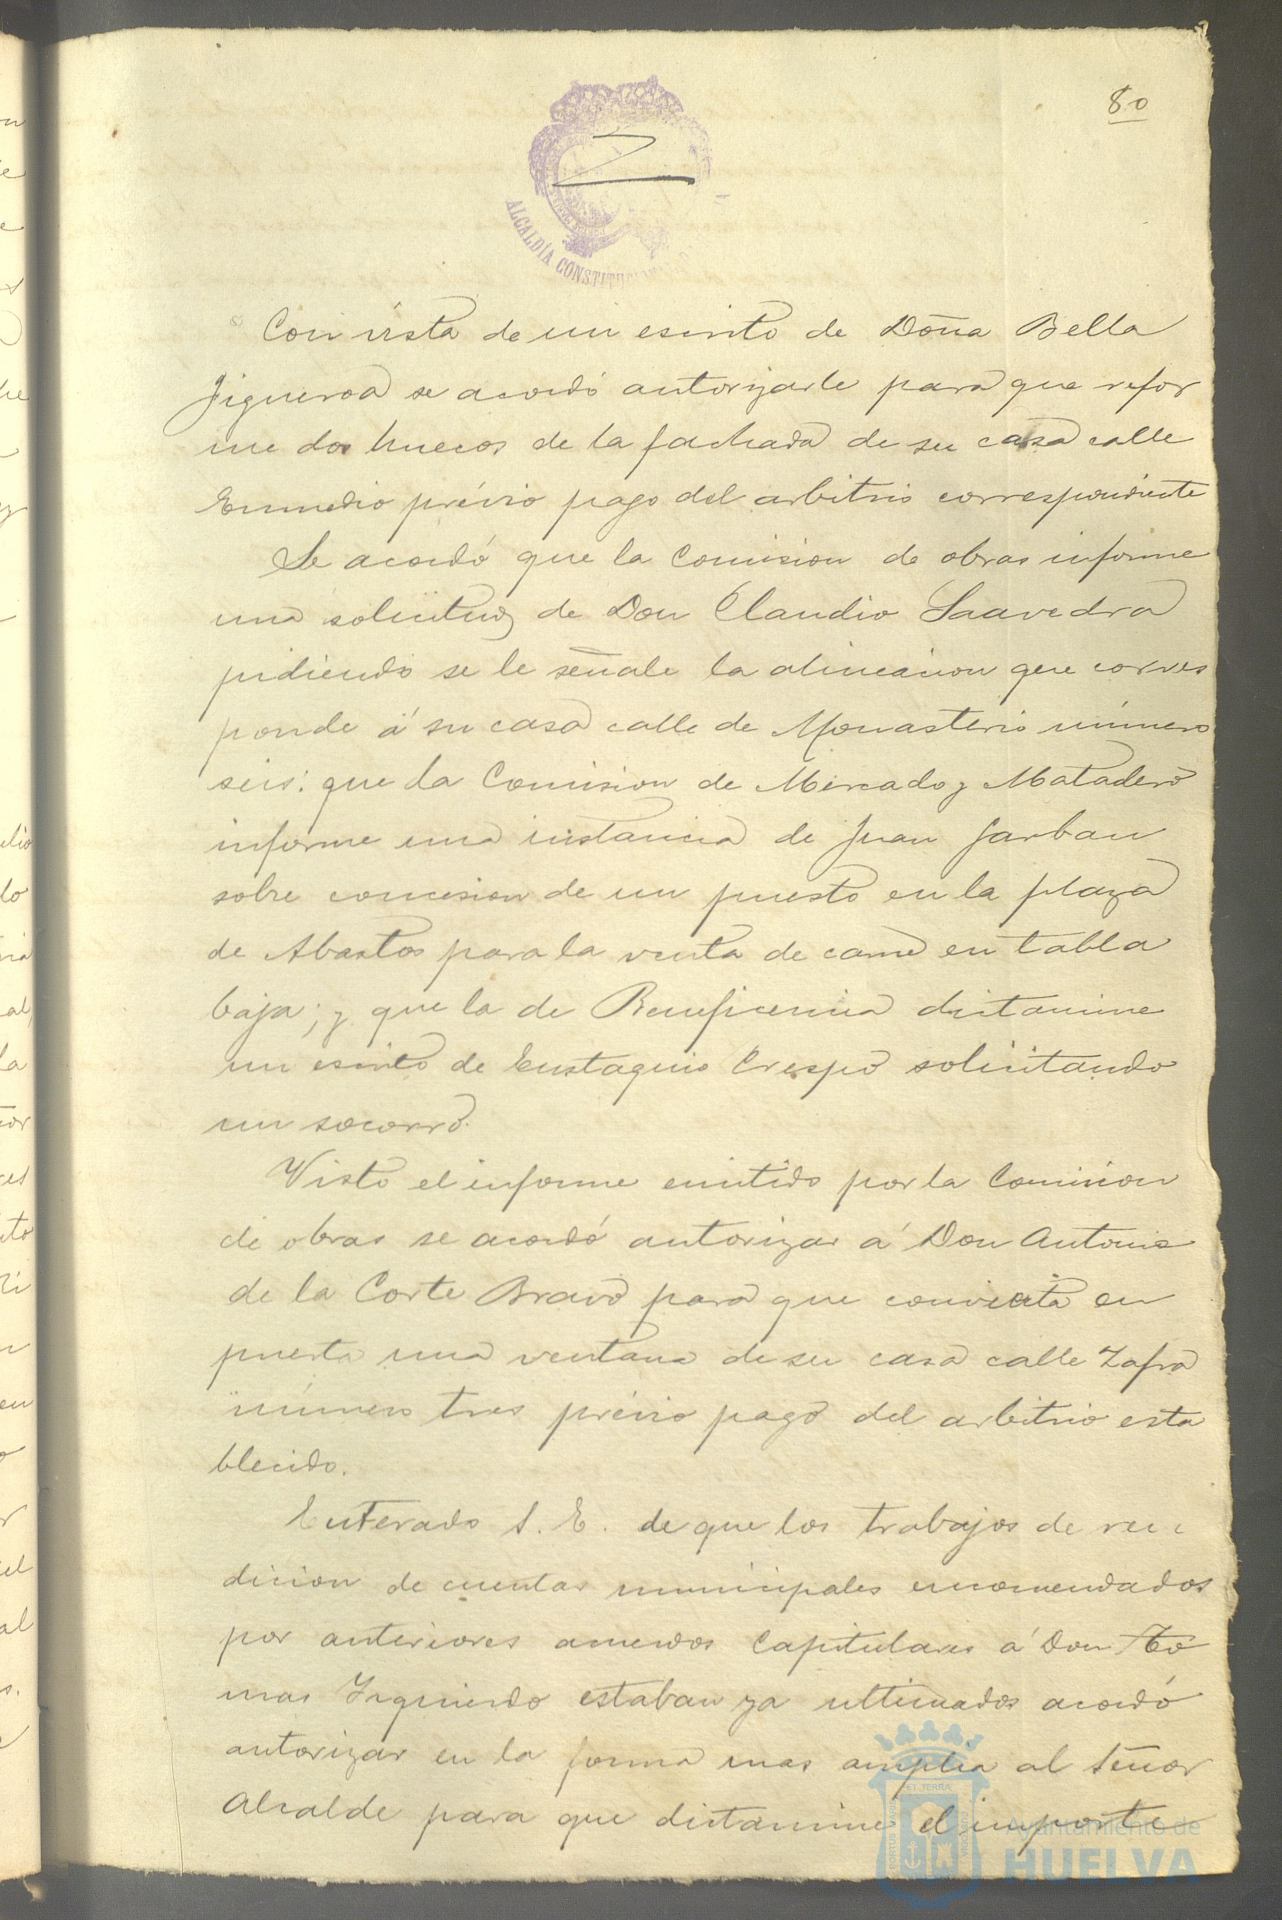 80
ALCALDÍA CONSTITUCIONAL
Con vista de un escrito de Doña Bella
Figueroa se acordó autorizarle para que refor
me dos huecos de la fachada de su casa calle
Enmedio prévio pago del arbitrio correspondiente
Se acordó que la Comision de obras informe
una solicitud de Don Claudio Saavedra
pidiendo se le señale la alineacion que corres
ponde á su casa calle de Monasterio número
seis: que la Comision de Mercado y Matadero
informe una instancia de Juan Garban
sobre concesion de un puesto en la plaza
de Abastos para la venta de carne en tabla
baja; y que la de Beneficencia dictamine
un escrito de Eustaquio Crespo solicitando
un socorro.
Visto el informe emitido por la Comision
de obras se acordó autorizar á Don Antonio
de la Corte Bravo para que convierta en
puerta una ventana de su casa calle Zafra
número tres prévio pago del arbitrio esta
blecido.
Enterado S. E. de que los trabajos de ren
dicion de cuentas municipales encomendados
por anteriores acuerdos Capitulares á Don To
mas Izquierdo estaban ya ultimados acordó
autorizar en la forma mas amplia al Señor
Alcalde para que dictamine el importe
PORTUS MARIS ET TERRÆ CUSTODIA
Ayuntamiento de
HUELVA